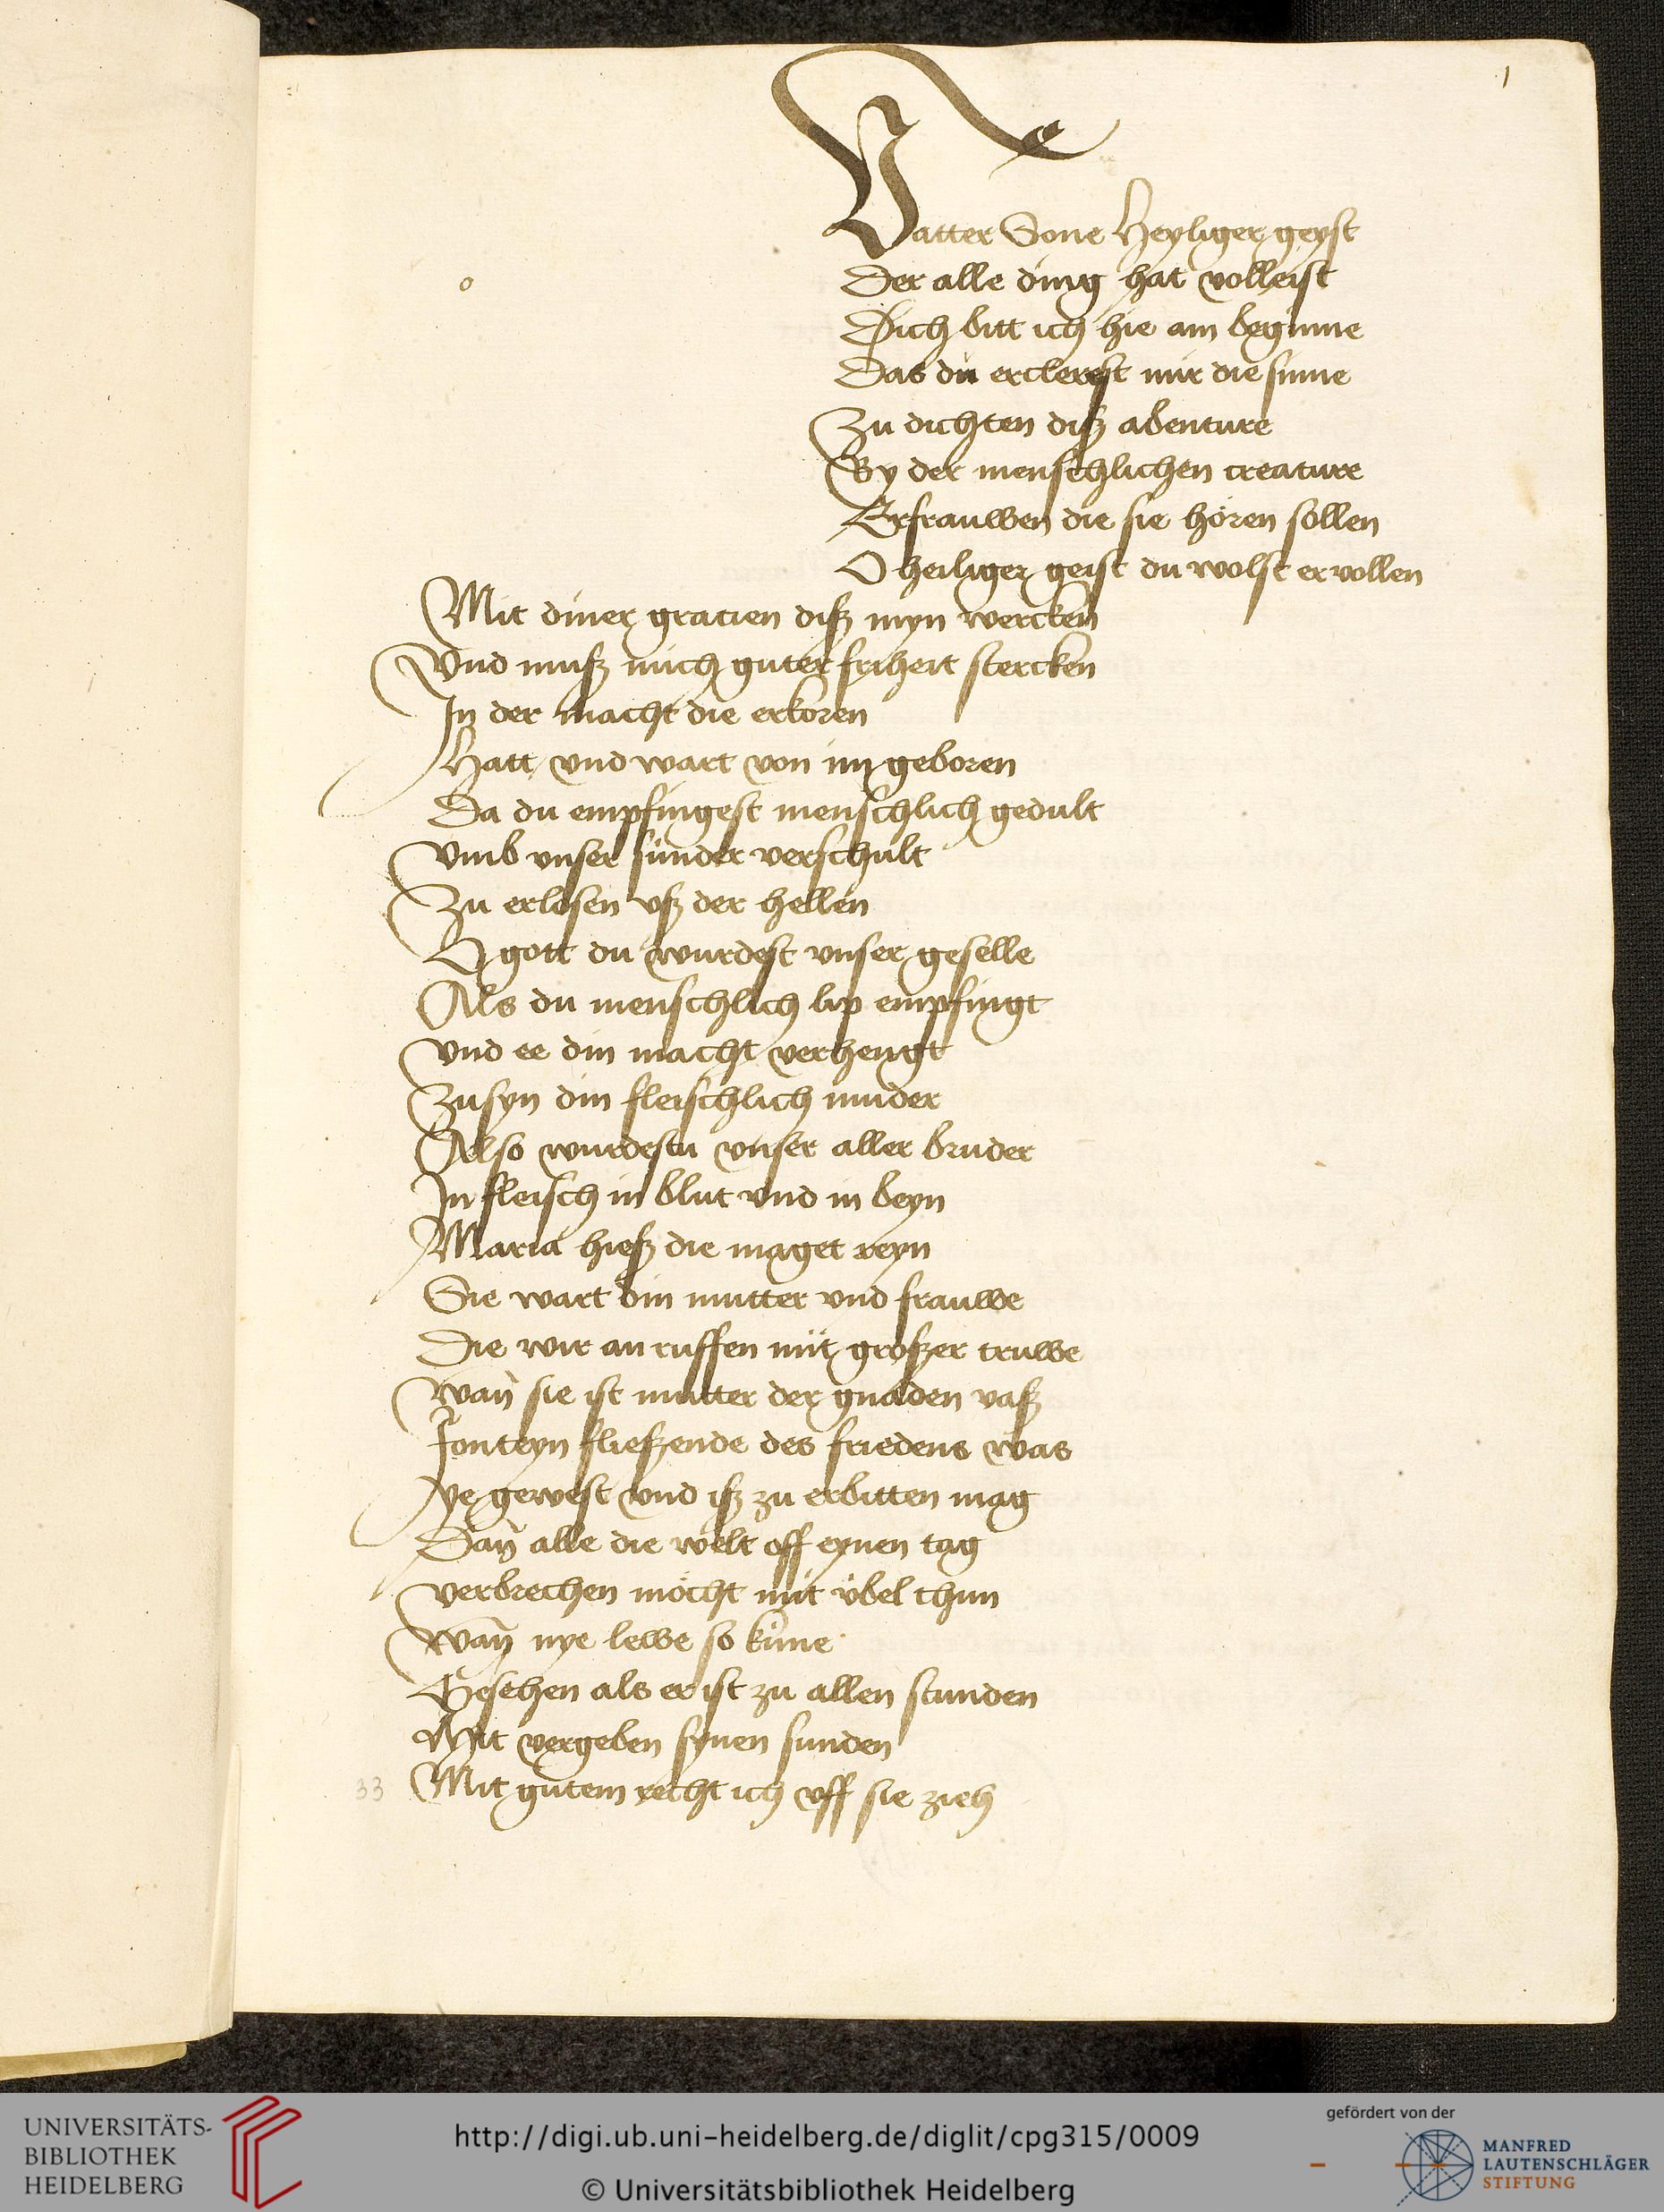 1
Vatter Sone Heyliger geyst
Der alle ding hat volleist
Dich bitt ich hie am beginne
Das du erclerest mir die sinne
Zu dichten disz abenture
By der menschlichen creature
Erfrauwen die sie hören sollen
O heiliger geist du wolst ervollen
Mit diner gracien disz myn wercken
Vnd musz mich guter friheit stercken
In der macht die erkoren
Hatt vnd wart von im geboren
Da du empfingest menschlich gedult
Vmb vnser sunder verschult
Zu erlosen vsz der hellen
O gott du wurdest vnser geselle
Als du menschlich lip empfingt
Vnd ee din macht verhengt
Zu syn din fleischlich muder
Also wurdestu vnser aller bruder
In fleisch in blut vnd in beyn
Maria hiesz die maget reyn
Sie wart din mutter vnd frauwe
Die wir an ruffen mit groszer truwe
Wañ sie ist mutter der gnaden vasz
Fonteyn flieszende des friedens was
Ye gewest vnd isz zu erbitten mag
Dañ alle die welt off eynen tag
Verbrechen möcht mit übel thun
Wañ nye lewe so küne
Gesehen als er ist zu allen stunden
Mit vergeben synen sunden
33 Mit gutem recht ich vff sie zieh
UNIVERSITÄTS-
BIBLIOTHEK
HEIDELBERG
http://digi.ub.uni-heidelberg.de/diglit/cpg315/0009
© Universitätsbibliothek Heidelberg
gefördert von der
MANFRED
LAUTENSCHLÄGER
STIFTUNG